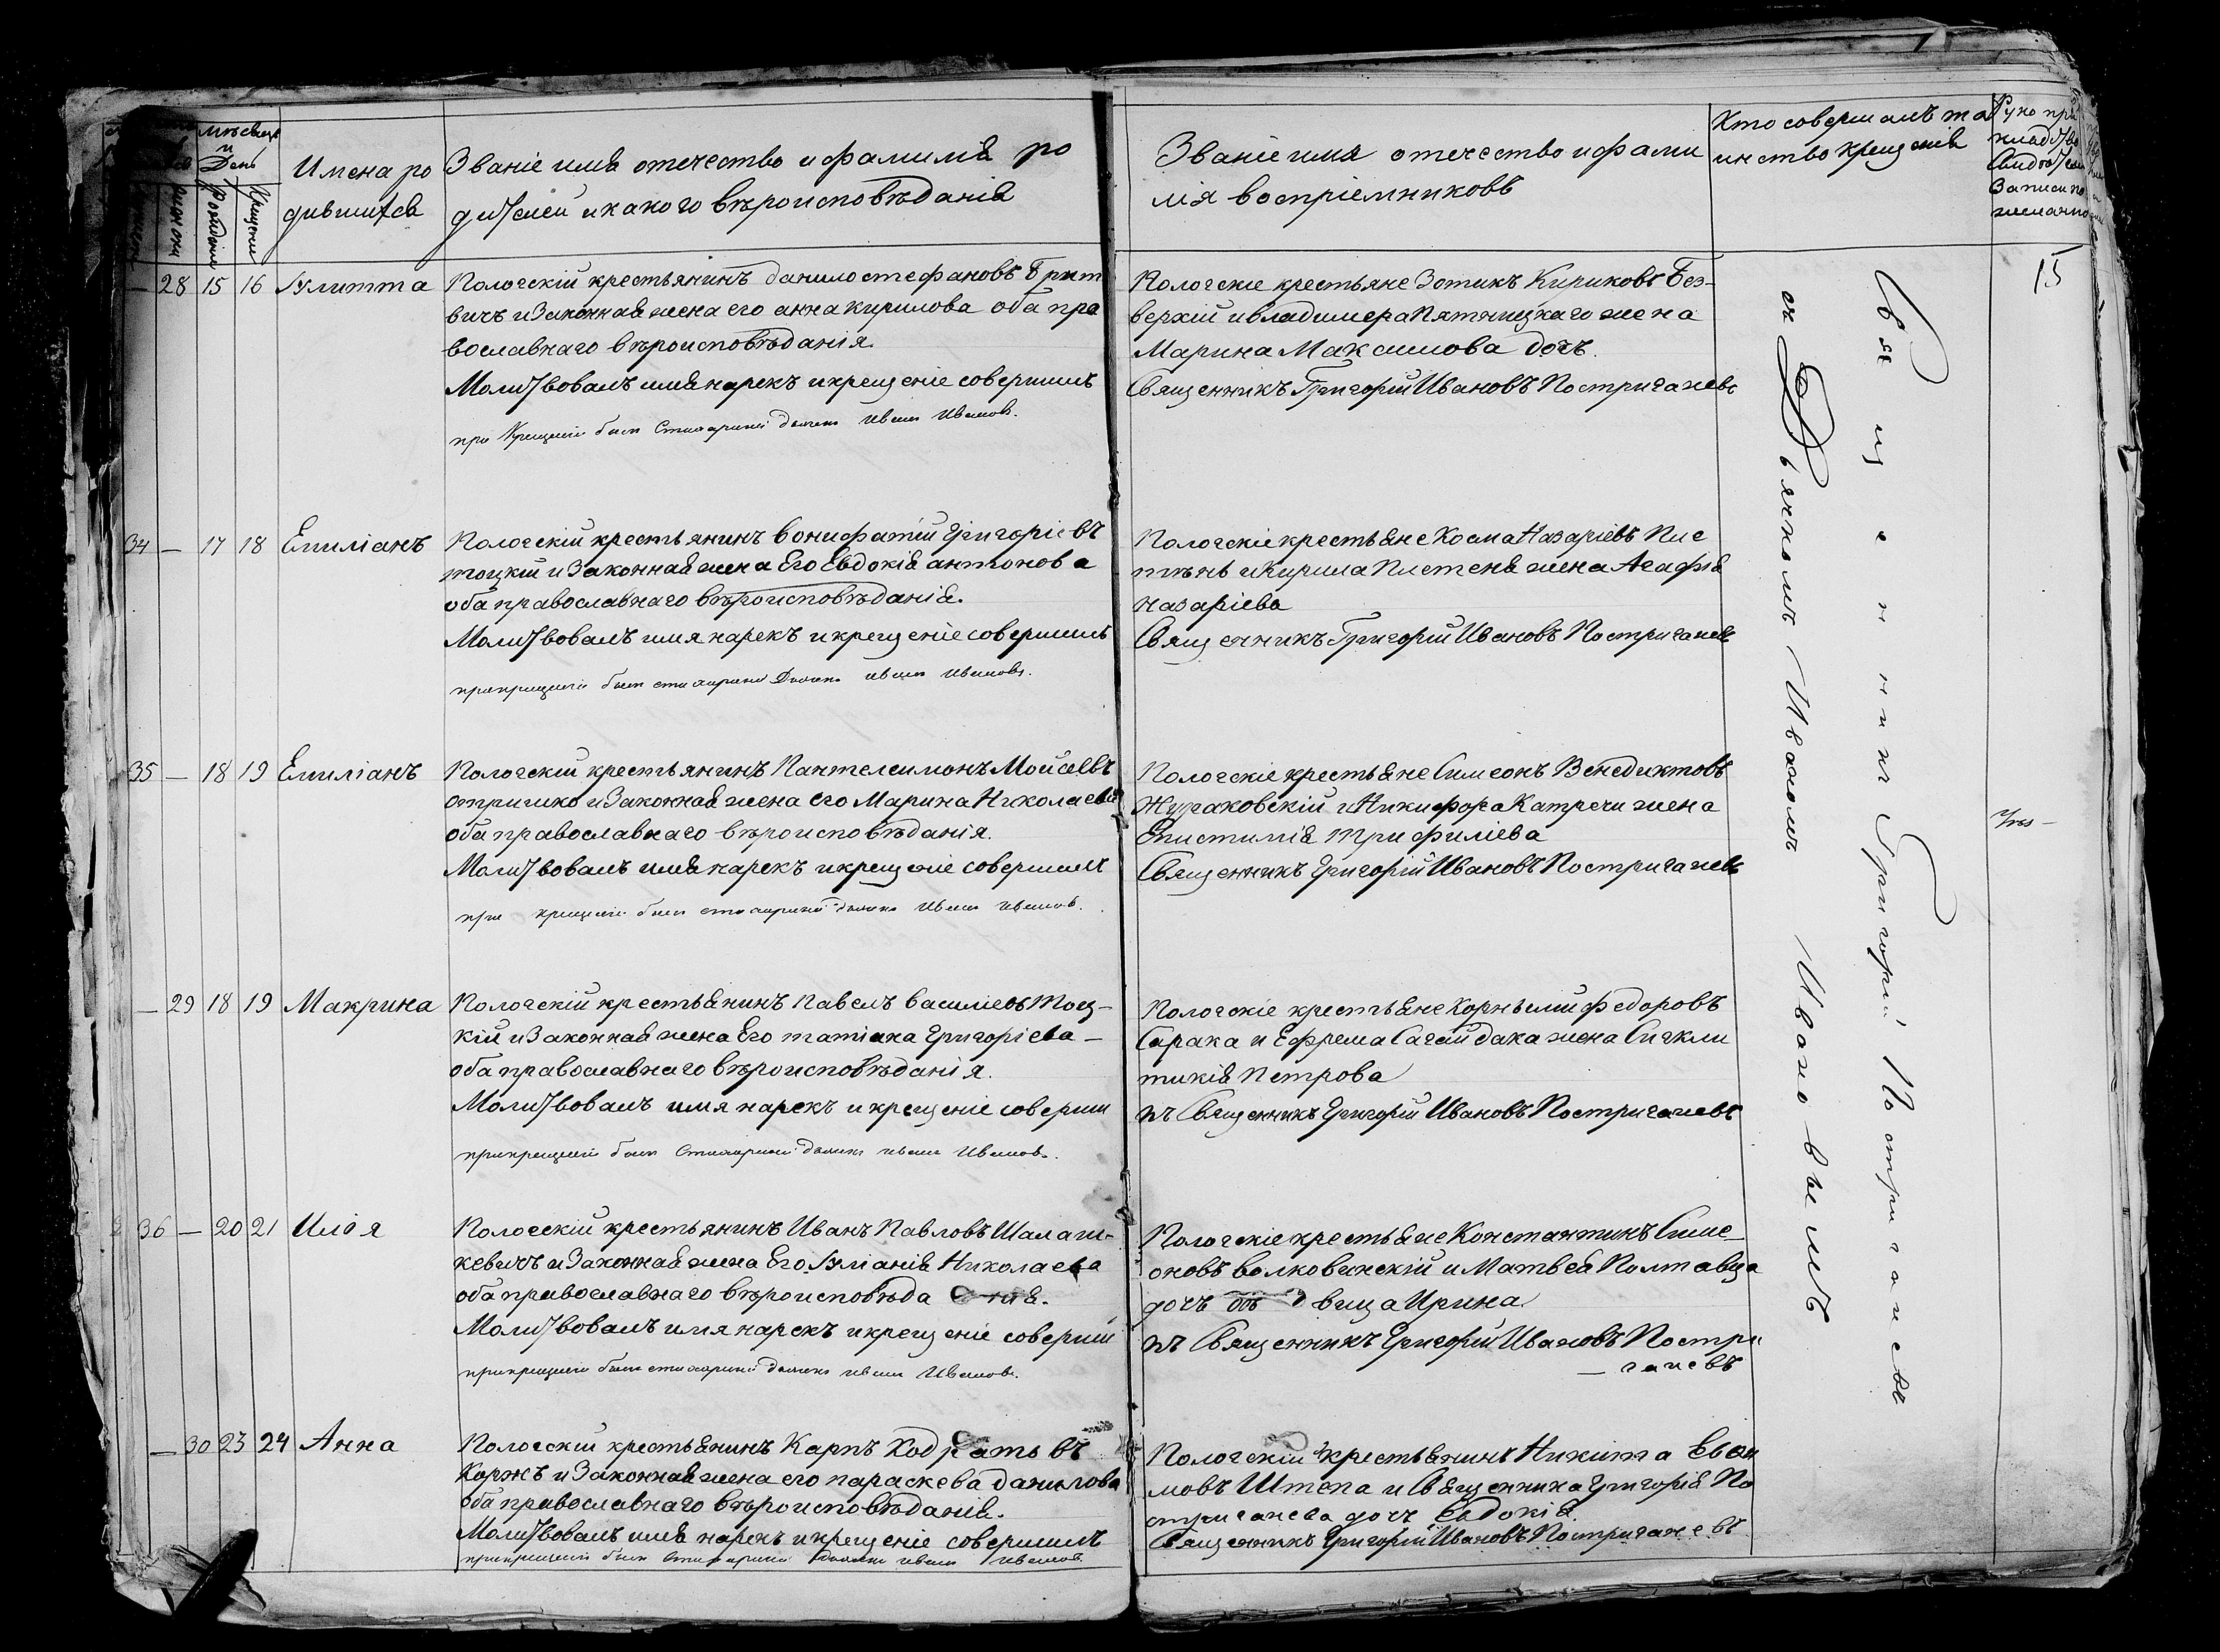 мѣсяцъ
и
День
Рожденіе
Крещеніе
Имена ро
дившихся
Званіе имя отечество и фамилія ро
дителей и какого вѣроисповѣданія
Званіе имя отечество и фами
лія воспріемниковъ
Кто совершалъ та
инство крещенія
Руко при
Записи по
15
— 28 15 16 Іулитта
Пологскій крестьянинъ данило стефановъ Грит
вичъ и Законная жена его анна кирилова оба пра
вославнаго вѣроисповѣданія.
Молитвовалъ имя нарекъ и крещеніе совершилъ
при Крещеніи былъ Стихарный дьячекъ иванъ Ивановъ.
Пологскіе крестьяне Зотикъ Кириковъ Без-
верхій и владимера Пятницкаго жена
Марина Максимова дочъ.
Священникъ Григорій Ивановъ Постригачевъ
34 — 17 18 Емиліанъ
Пологскій крестьянинъ вонифатій Григоріевъ
тоцкій и Законная жена Его Евдокія антонова
оба православнаго вѣроисповѣданія.
Молитвовалъ имя нарекъ и крещеніе совершилъ
прикрещеніи былъ стихарный Дьячекъ иванъ ивановъ.
Пологскіе крестьяне Косма Назаріевъ Пле
тѣнь и Кирила Плетеня жена Агафія
Назаріева
Священникъ Григорій Ивановъ Постригачевъ
35 — 18 19 Емиліанъ
Пологскій крестьянинъ Пантелеимонъ Мойсеевъ
отришко и Законная жена его Марина Николаева
оба православнаго вѣроисповѣданія.
Молитвовалъ имя нарекъ и крещеніе совершилъ
при крещеніи былъ стихарный дьячекъ Иванъ ивановъ.
Пологскіе крестьяне Симеонъ Венедиктовъ
Жураковскій и Никифора Катречи жена
Епистимія Трифиліева
Священникъ Григорій Ивановъ Постригачевъ
— 29 18 19 Макрина
Пологскій крестьянинъ Павелъ василіевъ Тоц-
кій и Законная жена Его татіана Григоріева —
оба православнаго вѣроисповѣданія.
Молитвовалъ имя нарекъ и крещеніе соверши
прикрещеніи былъ Стихарный дьячекъ иванъ Ивановъ.
Пологскіе крестьяне Корнылій Федоровъ
Сарака и Ефрема Сагайдака жена Сигкли
тикія Петрова
лъ Священникъ Григорій Ивановъ Постригачевъ
36 — 20 21 Илія
Пологскій крестьянинъ Иванъ Павловъ Шалаш-
кевичъ и Законная жена Его Іуліанія Николаева
оба православнаго вѣроисповѣда нія.
Молитвовалъ имя нарекъ и крещеніе соверши
прикрещеніи былъ стихарный дьячекъ иванъ Ивановъ.
Пологскіе крестьяне Константинъ Симе
оновъ волковинскій и Матвея Полтавца
дочъ двица Ирина
лъ Священникъ Григорій Ивановъ Постри
— гачевъ
— 30 23 24 Анна
Пологскій крестьянинъ Карпъ Кодратовъ
Коржъ и Законная жена его параскева данилова
оба православнаго вѣроисповѣданія.
Молитвовалъ имя нарекъ и крещеніе совершилъ
прикрещеніи былъ Стихарный дьячекъ иванъ ивановъ
Пологскій крестьянинъ Никита Евфи
мовъ Штепа и Священника Григорія По
стригачева дочъ Евдокія
Священникъ Григорій Ивановъ Постригачевъ
Священникъ Григорій Постригачевъ
съ Дьячкомъ Иваномъ Ивановымъ